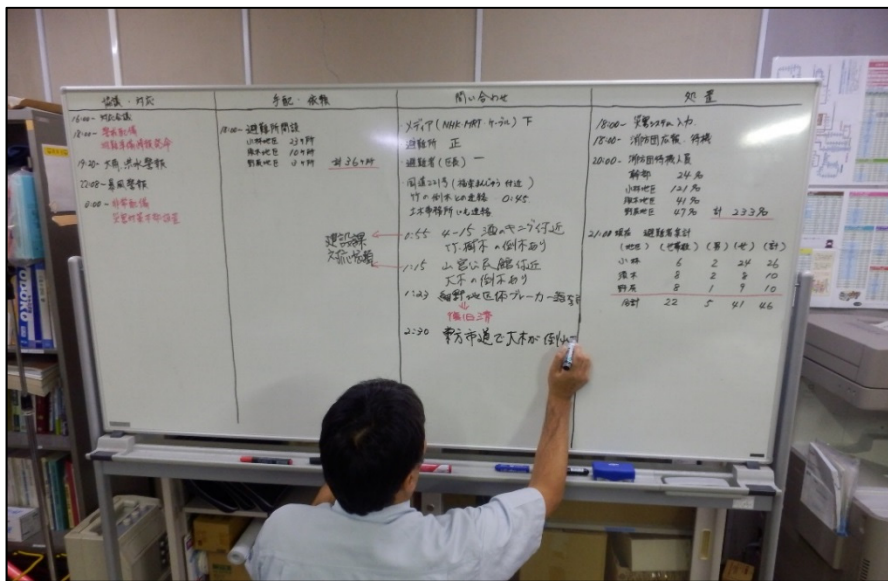 協議・対応
16:00- 対応会議
18:00- 警戒配備
19:20- 大雨、洪水警報
22:08- 暴風警報
0:00- 非常配備
災害対策本部設置
手配・依頼
18:00- 避難所開設
小林地区 23ヶ所
須木地区 10ヶ所
野尻地区 3ヶ所
計36ヶ所
建設課
対応依頼
問い合わせ
メディア(NHK・MRT・ケーブル) 下
避難所 正
避難者(住民) 一
国道221号
竹の倒木との連絡 0:45
土木事務所にも連絡
0:55 4-15 酒のキング付近
竹、樹木の倒木あり
1:15 山宮公民館付近
大木の倒木あり
1:23 細野地区体ブレーカー落
復旧済
2:30 東方市道で大木が倒れ
処置
18:00- 災害システム入力
18:00- 消防団広報、待機
20:00- 消防団待機人員
幹部 24名
小林地区 121名
須木地区 41名
野尻地区 47名 計 233名
21:00現在 避難者集計
(地区) (世帯数) (男) (女) (計)
小林 6 2 24 26
須木 8 2 8 10
野尻 8 1 9 10
合計 22 5 41 46